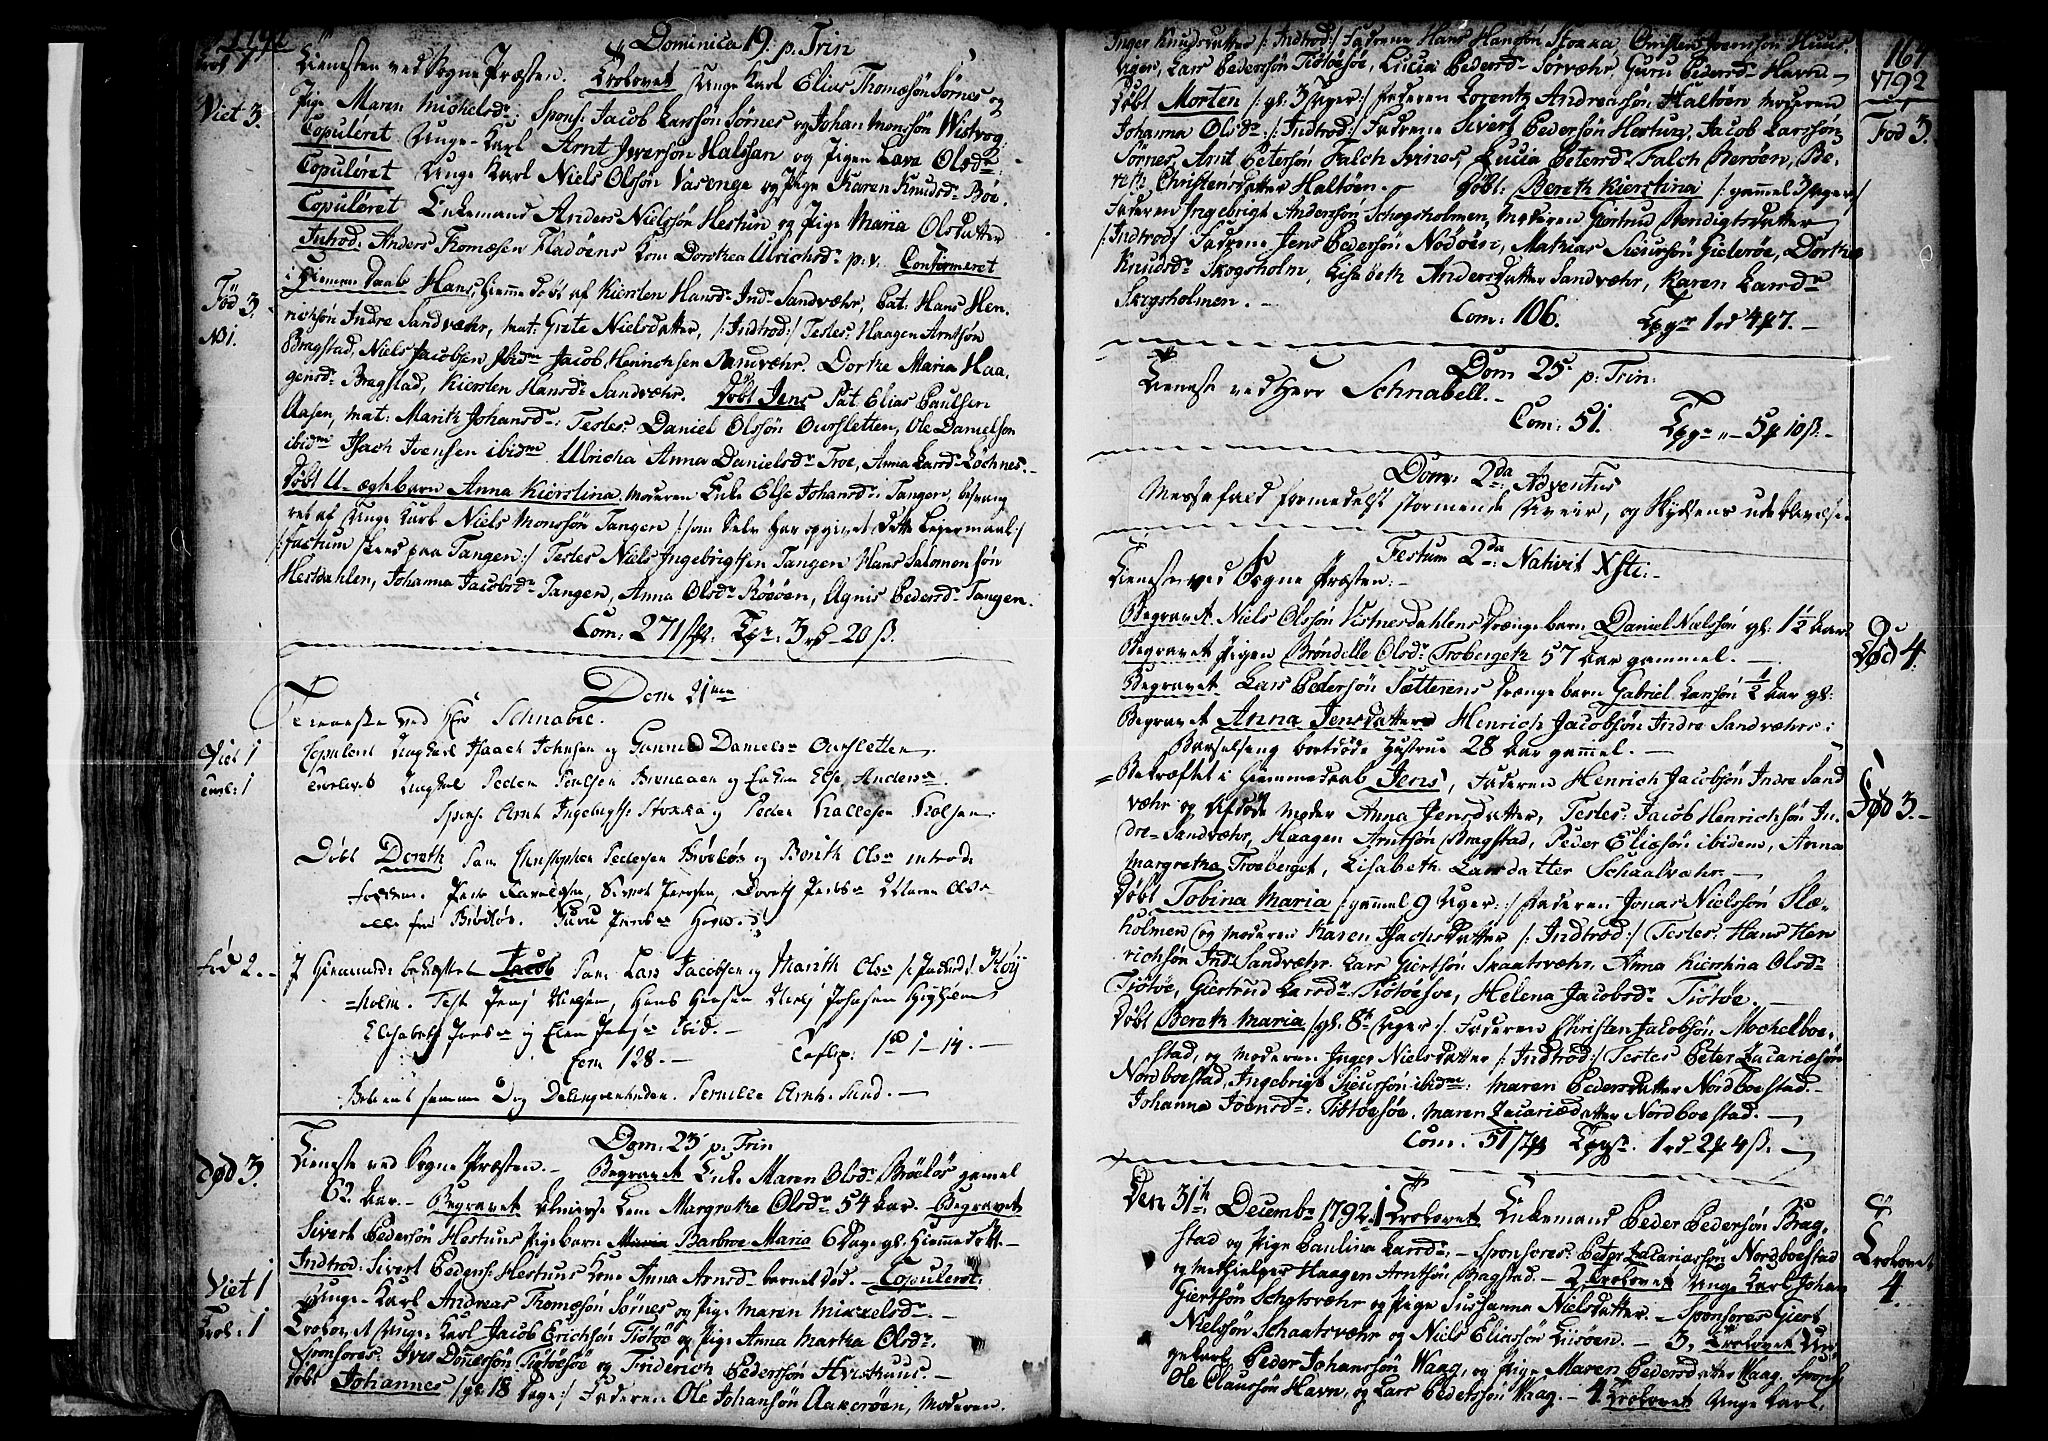 1792
Dominica 19. p. Trin
Tienesten ved Sogne Præsten. Trolovet Unge Karl Elias Thomæsøn Sørnes og
Viet 3.
Pige Maren Michelsdr. Spons: Jacob Larssøn Sørnes og Johan Monssøn Wistvog.
Copuleret Unge-Karl Arnt Iversøn Halsan og Pigen Lava Olsdr:
Copuleret Unge Karl Niels Olssøn Vasenge og Pige Karen Knudsdr. Bøe.
Copuleret Enkemand Anders Nielssøn Hestun og Pige Maria Olsdatter
Introd: Anders Thomæsen Fladøens Kone Dorothea Ulrichsdr. p. v. Confirmeret
Fød 3.
No 1.
i Hiemme Daab Hans, hiemme døbt af Kiersten Hansdr. Indr. Sandværhr, Pat: Hans Hen-
richsøn Indre Sandværhr, mat: Grete Nielsdatter, /: Indtrod :/ Testes: Haagen Arntsøn
Bragstad, Niels Jacobsen ibidm Jacob Henrichsen Sandværhr. Dorthe Maria Haa-
gensdr. Bragstad, Kiersten Hansdr. Sandværhr. Døbt Jens Pat: Elias Paulsen
Aasen, mat: Marith Johansdr: Testes: Daniel Olssøn Oursletten, Ole Danielsøn
ibidm Isach Ivensen ibidm. Ulricha Anna Danielsdr. Troe, Anna Larsdr. Løchnes.-
Døbt U-ægte Barn Anna Kierstina. Moderen Enke Else Johansdr: Tangen, besvang
ret af Unge Karl Niels Monssøn Tangen /: som Selv har opgivet dette Leyermaal :/
/: factum skeed paa Tangen :/ Testes Niels Ingebrigtsen Tangen Hans Salomonsøn
Hestdahlen, Johanna Jacobsdr. Tangen, Anna Olsdr. Røøen, Agnis Pedersdr. Tangen.
Com: 271 Tgr: 3 rd - 20 ß.
Dom 21me
Tieneste ved Hr Schnabel.
Viet 1
Copuleret Ungkarl Isaach Johnsen og Gunnild Daniels Oursletten.
Trol: 1
Trolovet Ungkarl Peder Poulsen og Enken Else Anders
Spons: Arnt Ingebrigtss: Stokka og Peder Hallesen
Døbt Doreth Par: Christopher Pedersen og Berith Olsr. introd
Fød 2.
I Hiemmedaab bekræftet Jacob Par: Lars Jacobsen og Marith Olsr
=holm. Test: Jens Nielsen, Hans Hansen Niels Johnsen
Elisabeth Jensr og Ellen Jensr Ibid. -
Com 128. - Taflp: 1 rd 1 - 14. -
Dom: 23 p. Trin
Død 3.
Tieneste ved Sogne Præsten. - Begravet Enke Maren Olsdr. Brøeløs gamel
62 Aar. - Begravet Almisse Lem Margrethe Olsdr. 54 Aar. Begravet
Sivert Pedersøn Hestuns Pigebarn Maria Barbroe Maria 6 Dage gl. Hiemme døbt. -
Introd: Sivert Peders: Hestuns Kone Anna Arnsdr. barnet død. - Copuleret:
Viet 1
Unge-Karl Andreas Thomæsøn Sørnes og Pige Maren Mikkelsdr. -
Trol: 1
Trolovet Unge-Karl Jacob Erichsøn Tiøtøe og Pige Anna Martha Olsdr.
Sponsores: Iver Dønesøn Tiøtøesøe og Friderich Pederssøn Hvisthuus. -
Døbt Johannes /: gl. 18 Dage :/ Faderen Ole Johansøn Aakerøen, Moderen
Inger Knudsdatter /: Indtrod :/ Fadrene Hans Hansøn Stokka, Christen Ivenssøn Huus-
164
1792
vigen, Lars Pederssøn Tiøtøesøe, Lucia Pedersdr. Sørværhr, Guru Pedersdr. Havn. -
Fød 3.
Døbt Morten /: gl: 3 Uger :/ Faderen Lorentz Andreassøn Haltøen Moderen
Johanna Olsdr: /: Indtrod :/ Fadrene Sivert Pedersøn Hestun, Jacob Larssøn
Sørnes, Arnt Petersøn Falch Svines, Lucia Petersdr. Falch Berøen, Be-
reth Christensdatter Haltøen. - Døbt: Bereth Kierstina /: gammel 3 Uger :/
Faderen Ingebrigt Anderssøn Schogsholmen, Moderen Giertrud Bendigtsdatter
/: Indtrod :/ Fadrene Jens Pedersøn Nødøen, Mathias Siversøn Gielerøe, Dorthe
Knudsdr. Skogsholm, Lisbeth Andersdatter Sandværhr, Karen Larsdr
Skogsholmen. -
Com: 106. Tpgr 1 rd 4 p 7. -
Dom 25 p: Trin:
Tieneste ved Herr Schnabell. -
Com: 51. Tpgr „ - 5 p 10 ß. -
Dom: 2da: Adventus
Messefald formedelst stormende Uveir, og Skydsens udeblivelse.
Festum 2da: Nativit Xsti: -
Tieneste ved Sogne Præsten. -
Død 4.
Begravet Niels Olssøn Vistnesdahlens Drængebarn Daniel Nielssøn gl: 1½ Aar.
Begravet Pigen Brøndelle Olsdr. Trobergeth 57 Aar gammel. -
Begravet Lars Pedersøn Sætterens Drængebarn Gabriel Larssøn ½ Aar gl:
Begravet Anna Jensdatter Henrich Jacobsøn Indre Sandværhrs i
Barselseng bortdøde Hustrue 28 Aar gammel. -
Fød 3. -
Bekræftet i Hiemmedaab Jens, Faderen Henrich Jacobsøn Indre Sand
værhr og Afdøde Moder Anna Jensdatter, Testes: Jacob Henrichsøn In-
dre-Sandværhr, Haagen Arntsøn Bragstad, Peder Eliasøn ibidem, Anna
Margretha Troeberget, Lisabeth Larsdatter Schaalværhr. -
Døbt Tobina Maria /: gammel 9 Uger :/ Faderen Jonas Nielssøn Slæ-
holmen og Moderen Karen Isachsdatter /: Indtrod :/ Testes: Hans Hen
richsøn Ind: Sandværhr. Lars Giertsøn Skaatsværhr, Anna Kierstina Olsdr.
Tiøtøe, Giertrud Larsdr. Tiøtøesøe, Helena Jacobsdr. Tiøtøe. -
Døbt Bereth Maria /: gl. 8 Uger :/ Faderen Christen Jacobsøn Mechelboe-
stad, og Moderen Inger Nielsdatter /: Indtrod :/ Testes Peter Zacariæsøn
Nordboestad, Ingebrigt Siversøn ibidm: Maren Pedersdatter Nordboestad. -
Johanna Ivensdr: Tiøtøesøe. Maren Zacariædatter Nordboestad. -
Com. 51 Tpgr. 1 rd - 2 p 4 ß. -
Trolovet
4.
Den 31te Decembr 1792. 1 Trolovet Enkemand Peder Pedersøn Brag-
stad og Pige Paulina Larsdr. - Sponsores: Peter Zachariassøn Nordboestad
og Medhielper Haagen Arntsøn Bragstad. - 2 Trolovet Unge Karl Johan
Giertsøn Schotsværhr og Pige Sussanna Nielsdatter. - Sponsores Giert
Nielssøn Schaatsværhr og Niels Eliassøn Liisøen. - 3, Trolovet Un-
gekarl Peder Johanssøn Waag, og Pige Maren Pedersdatter Waag. Spons:
Ole Claussøn Havn, og Lars Pederssøn Waag. - 4 Trolovet Unge Karl.